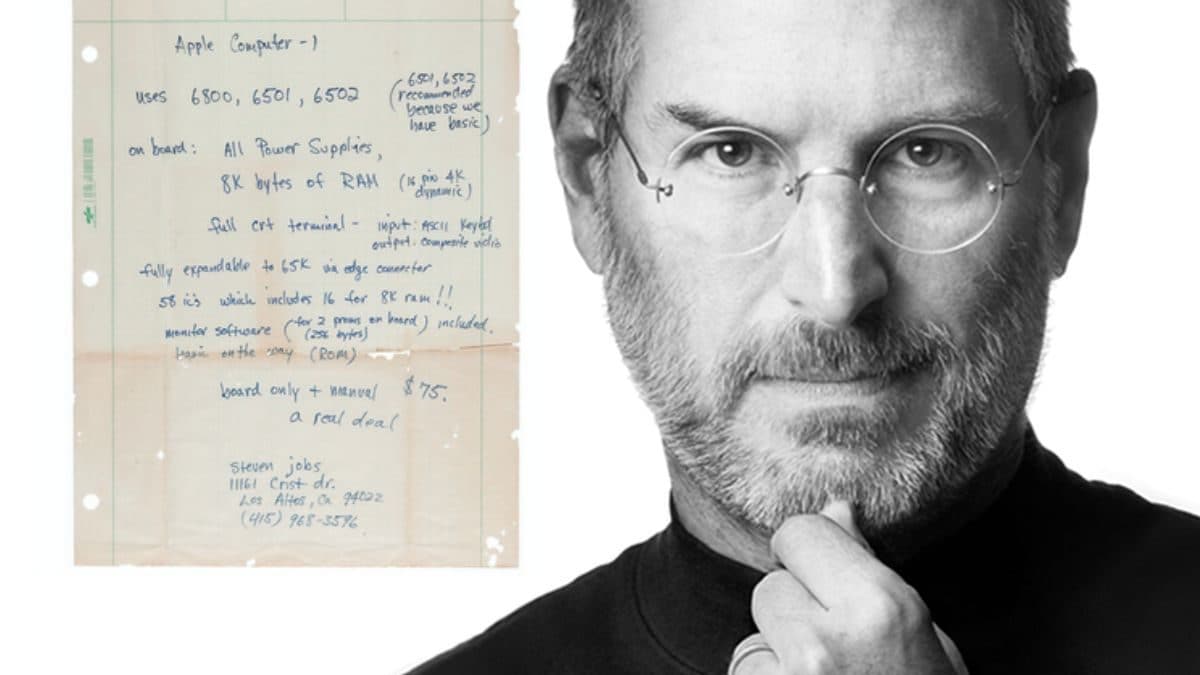 Apple Computer - 1
uses 6800, 6501, 6502
(6501, 6502
recommended
because we
have basic)
on board: All Power Supplies,
8K bytes of RAM (16 pin 4K
dynamic)
full crt terminal - input: ASCII Keybd
output: composite video
fully expandable to 65K via edge connector
58 ic's which includes 16 for 8K ram!!
monitor software (for 2 proms on board) included.
(256 bytes)
basic on the way (ROM)
board only + manual $75.
a real deal
Steven jobs
11161 Crist dr.
Los Altos, Ca 94022
(415) 968-3596